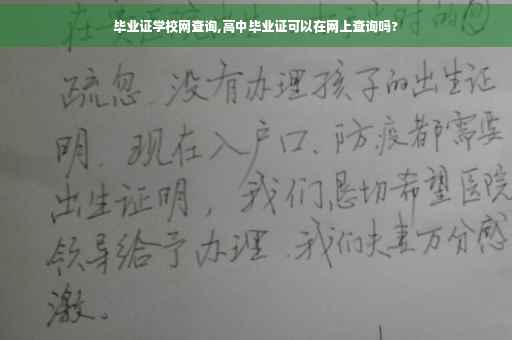 毕业证学校网查询,高中毕业证可以在网上查询吗?
疏忽、没有办理孩子的出生证
明、现在入户口、防疫都需要
出生证明，我们恳切希望医院
领导给予办理、我们夫妻万分感
激。